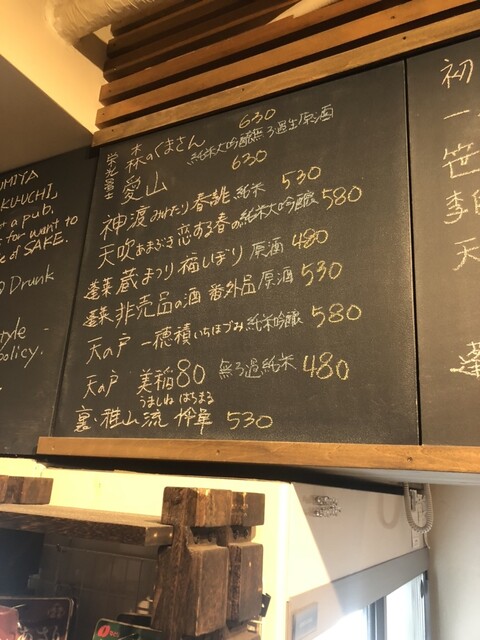 UMIYA
KUUCHI」
a pub.
for want to
SAKE.
Drunk
style
policy.
栄光冨士 森のくまさん 630
純米大吟醸無ろ過生原酒
愛山 630
神渡 みわたり 春誂 純米 530
天吹 あまぶき 恋する春の純米大吟醸 580
蓬莱 蔵まつり 福しぼり 原酒 480
蓬莱 非売品の酒 番外品 原酒 530
天の戸 一穂積 いちほづみ 純米吟醸 580
天の戸 美稲80 無ろ過純米 480
うましね はちまる
裏・雅山流 530
初
一
笹
李
天
蓬